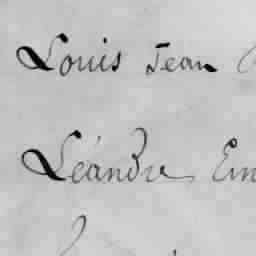 Louis Jean
Léandre